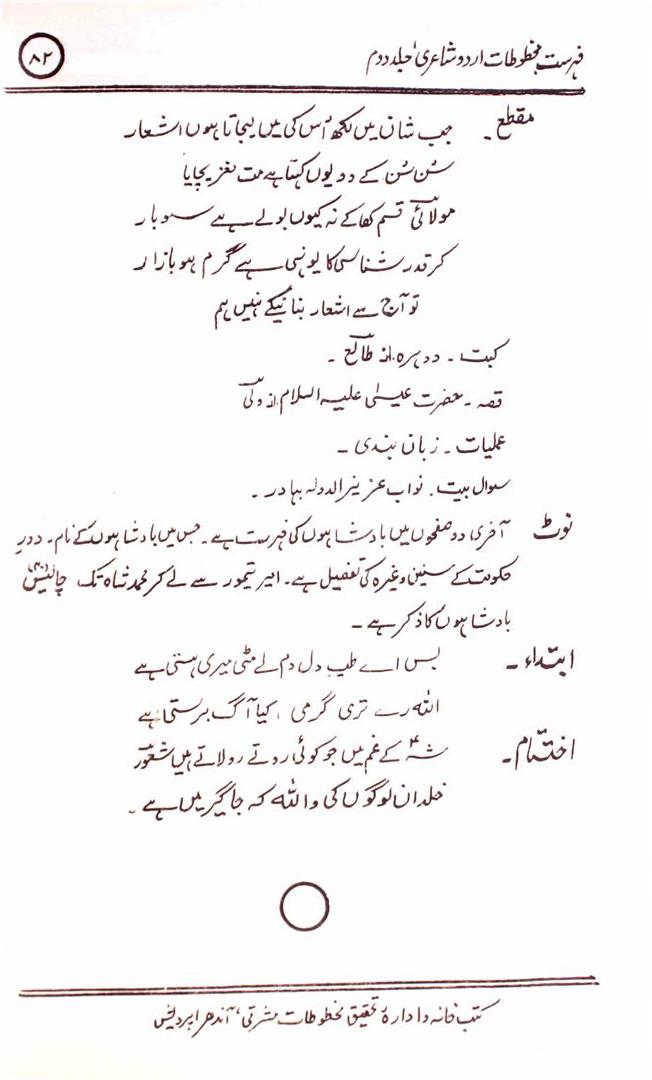 فہرست مخطوطات اردو شاعری، جلد دوم
۸۲
مقطع۔ جب شان میں لکھ اُس کی میں لیجاتا ہوں اشعار
سُن سُن کے وہ یوں کہتا ہے مت
مولائیؔ قسم کھا کے نہ کیوں بولے ہے سو بار
کر قدر شناسی کا یونہی ہے گرم ہو بازار
تو آج سے اشعار بنانیکے نہیں ہم
کبت۔ دوہرہ از طالعؔ۔
قصہ۔ حضرت عیسیٰ علیہ السلام از ولیؔ
عملیات۔ زبان بندی۔
سوال بیت۔ نواب عزیز الدولہ بہادر۔
نوٹ آخری دو صفحوں میں بادشاہوں کی فہرست ہے۔ جس میں بادشاہوں کے نام۔ دورِ
حکومت کے سنین وغیرہ کی تفصیل ہے۔ امیر تیمور سے لے کر محمد شاہ تک چالیس (۴۰)
بادشاہوں کا ذکر ہے۔
ابتداء۔ بس اے طپِ دل دم لے مٹی میری ہستی ہے
اللہ رے تری گرمی، کیا آگ برستی ہے
اختتام۔ شہؑ کے غم میں جو کوئی روتے رولاتے ہیں شعورؔ
خلد ان لوگوں کی واللہ کہ جاگیر میں ہے۔
کتب خانہ و ادارۂ تحقیق مخطوطات مشرقی، آندھرا پردیش